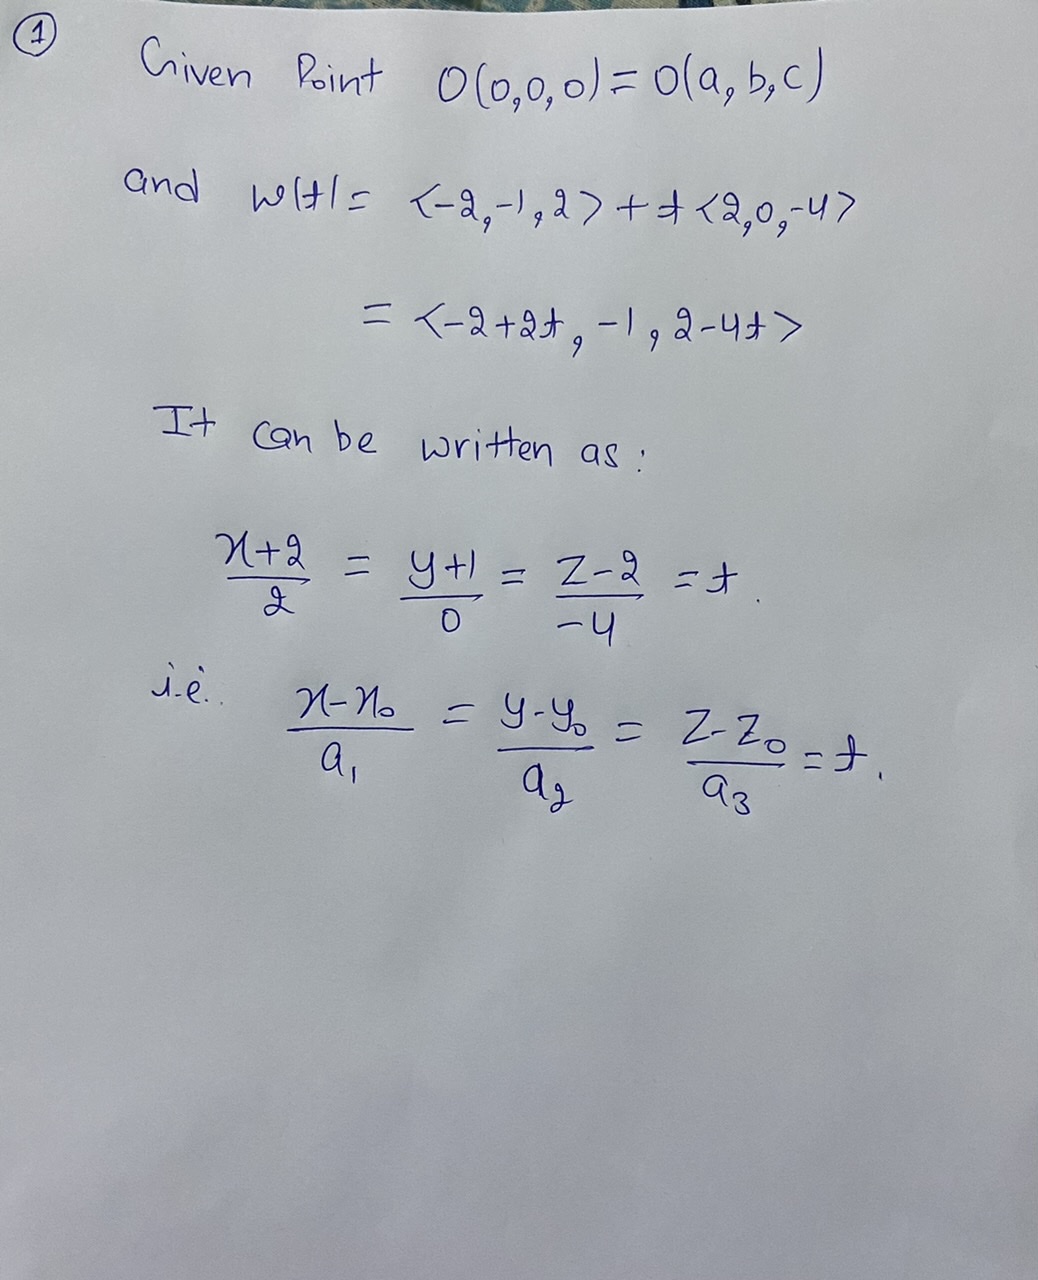 ①
Given Point O(0,0,0) = O(a,b,c)
and w(t) = <-2,-1,2> + t<2,0,-4>
= <-2+2t, -1, 2-4t>
It can be written as:
x+2/2 = y+1/0 = z-2/-4 = t.
i.e. x-x₀/a₁ = y-y₀/a₂ = z-z₀/a₃ = t.